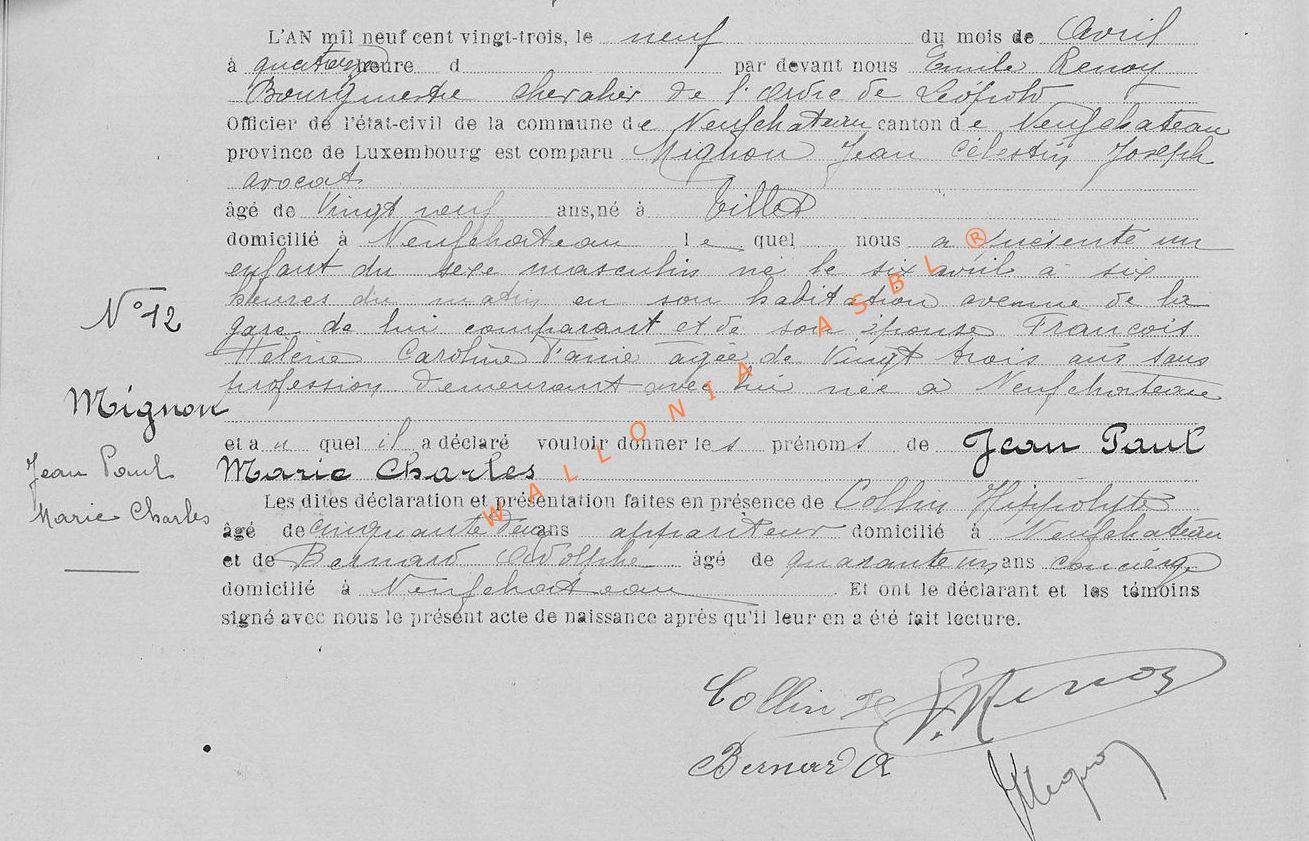 L'AN mil neuf cent vingt-trois, le neuf du mois de Avril
à quatorze heure d par devant nous Emile Renoy
Bourgmestre chevalier de l'ordre de Léopold
Officier de l'état-civil de la commune de Neufchateau canton de Neufchateau
province de Luxembourg est comparu Mignon Jean Célestin Joseph
avocat
âgé de Vingt neuf ans, né à Tillet
domicilié à Neufchateau le quel nous a présenté un
enfant du sexe masculin né le six avril à six
heures du matin en son habitation avenue de la
gare de lui comparant et de son épouse François
Hélène Caroline agée de Vingt trois ans sans
profession demeurant avec lui née à Neufchateau
et a u quel il a déclaré vouloir donner les prénoms de Jean Paul
Marie Charles
Les dites déclaration et présentation faites en présence de Collin Hippolyte
âgé de cinquante deux ans appariteur domicilié à Neufchateau
et de Bernard Adolphe âgé de quarante un ans concierge
domicilié à Neufchateau. Et ont le déclarant et les témoins
signé avec nous le présent acte de naissance après qu'il leur en a été fait lecture.
N° 12
Mignon
Jean Paul
Marie Charles
Collin H
E. Renoy
Bernard A
JMignon
WALLONIA ASBL ®